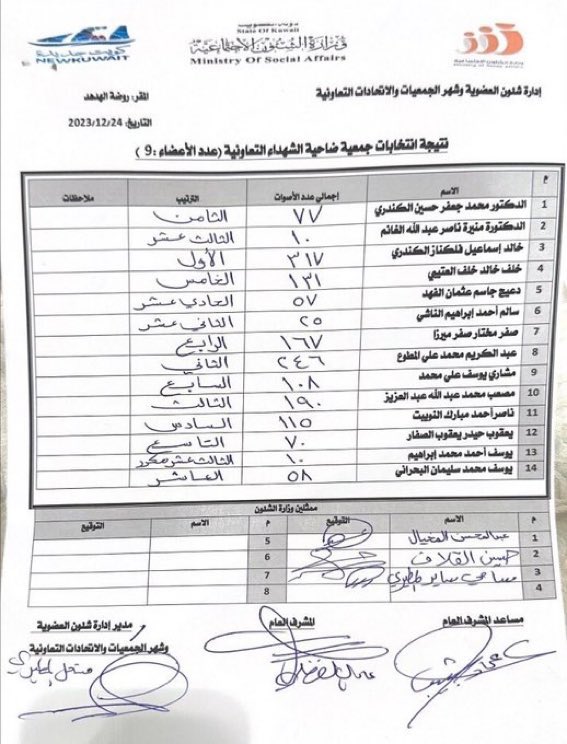 كويت جديدة
NEWKUWAIT
دولة الكويت
State Of Kuwait
وزارة الشئون الاجتماعية
Ministry Of Social Affairs
إدارة شئون العضوية وشهر الجمعيات والاتحادات التعاونية
المقر: روضة الهدهد
التاريخ: 2023/12/24
نتيجة انتخابات جمعية ضاحية الشهداء التعاونية (عدد الأعضاء :9 )
م الاسم إجمالي عدد الأصوات الترتيب ملاحظات
1 الدكتور محمد جعفر حسين الكندري ٧٧ الثامن
2 الدكتورة منيرة ناصر عبد الله الغانم ١٠ الثالث عشر
3 خالد إسماعيل فلكناز الكندري ٣١٧ الأول
4 خلف خالد خلف العتيبي ١٣١ الخامس
5 دعيج جاسم عثمان الفهد ٥٧ الحادي عشر
6 سالم أحمد إبراهيم الناشي ٢٥ الثاني عشر
7 صفر مختار صفر ميرزا ١٦٧ الرابع
8 عبد الكريم محمد علي المطوع ٢٤٦ الثاني
9 مشاري يوسف علي محمد ١٠٨ السابع
10 مصعب محمد عبد الله عبد العزيز ١٩٠ الثالث
11 ناصر أحمد مبارك النويبت ١١٥ السادس
12 يعقوب حيدر يعقوب الصفار ٧٠ التاسع
13 يوسف أحمد محمد إبراهيم ١٠ الثالث عشر مكرر
14 يوسف محمد سليمان البحراني ٥٨ العاشر
ممثلين وزارة الشئون
م الاسم التوقيع م الاسم التوقيع
1 عبدالمحسن 5
2 حسين القلاف 6
3 مساعي ساير المطيري 7
4 8
مساعد المشرف العام
المشرف العام
مدير إدارة شئون العضوية
وشهر الجمعيات والاتحادات التعاونية